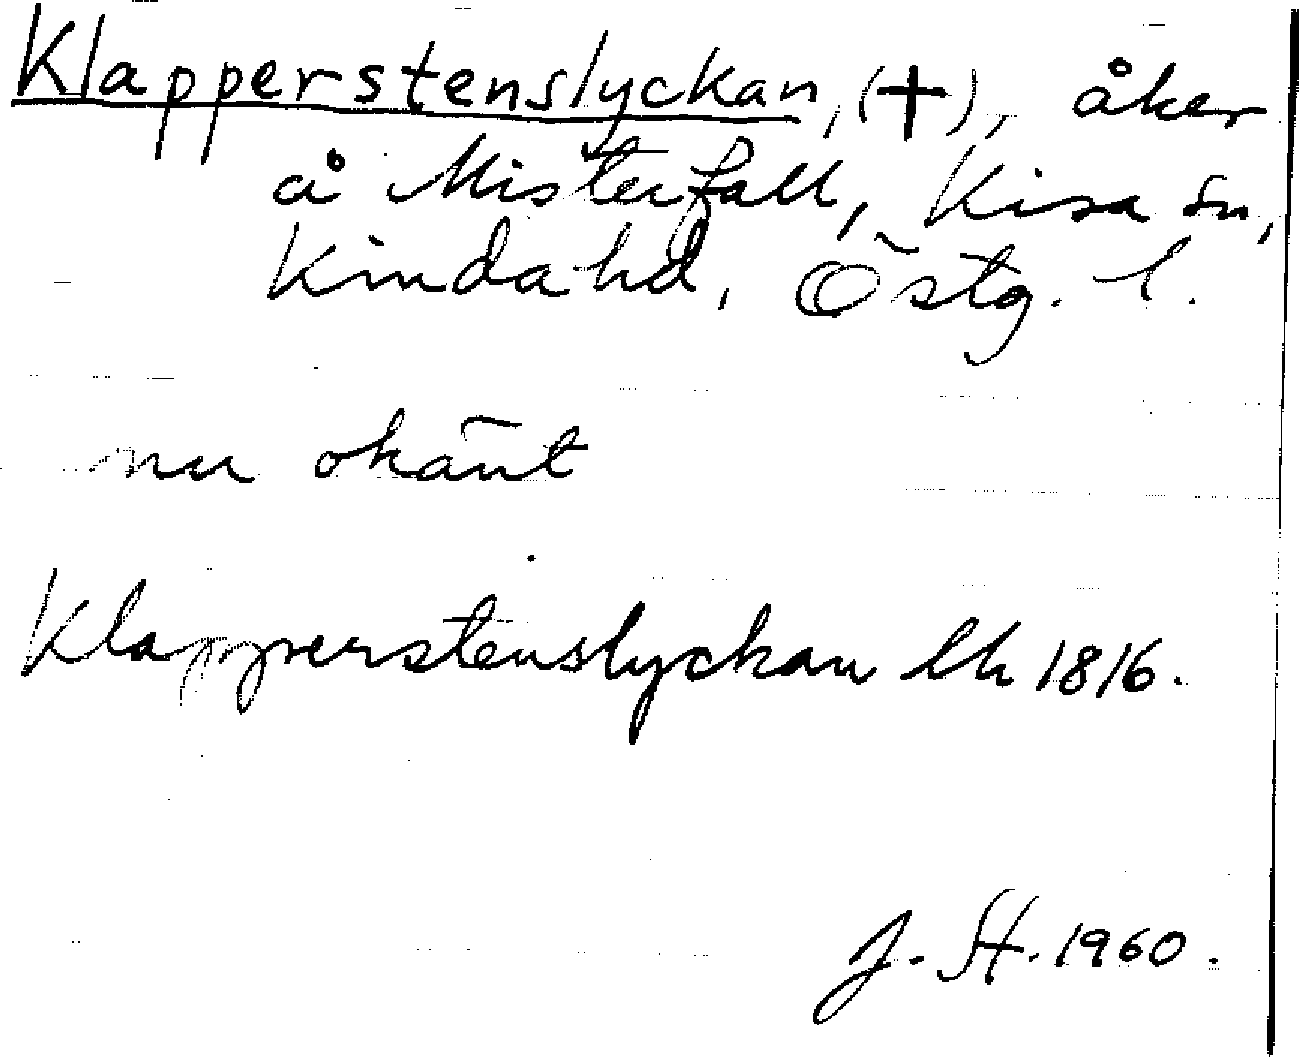 Klapperstenslyckan, (+), åker
å Misterfall, Kisa sn,
Kinda hd, Östg. l.
nu okänt
Klapperstenslyckan lh 1816.
J. St. 1960.